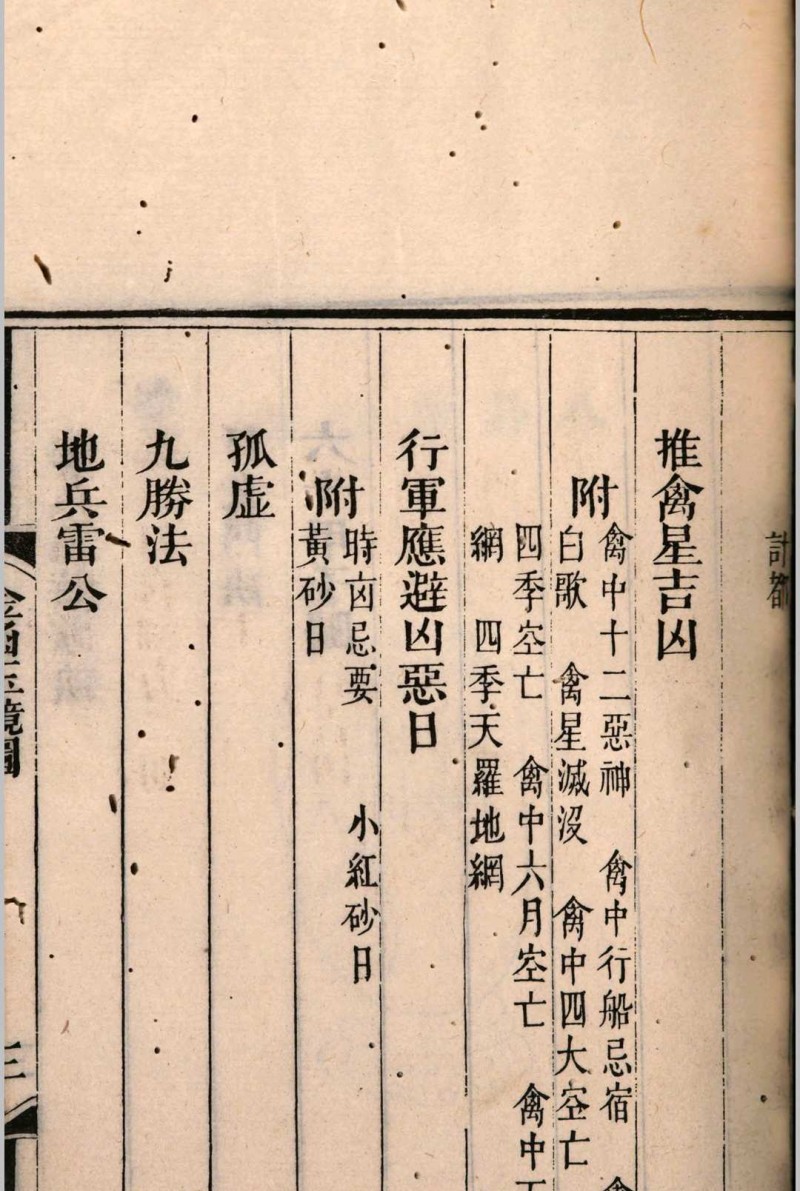 計都
推禽星吉凶
附
禽中十二惡神　禽中行船忌宿　禽
白歌　禽星滅沒　禽中四大空亡
四季空亡　禽中六月空亡　禽中
網　四季天羅地網
行軍應避凶惡日
附
時凶忌要　小紅砂日
黃砂日
孤虛
九勝法
地兵雷公
鏡圖
三